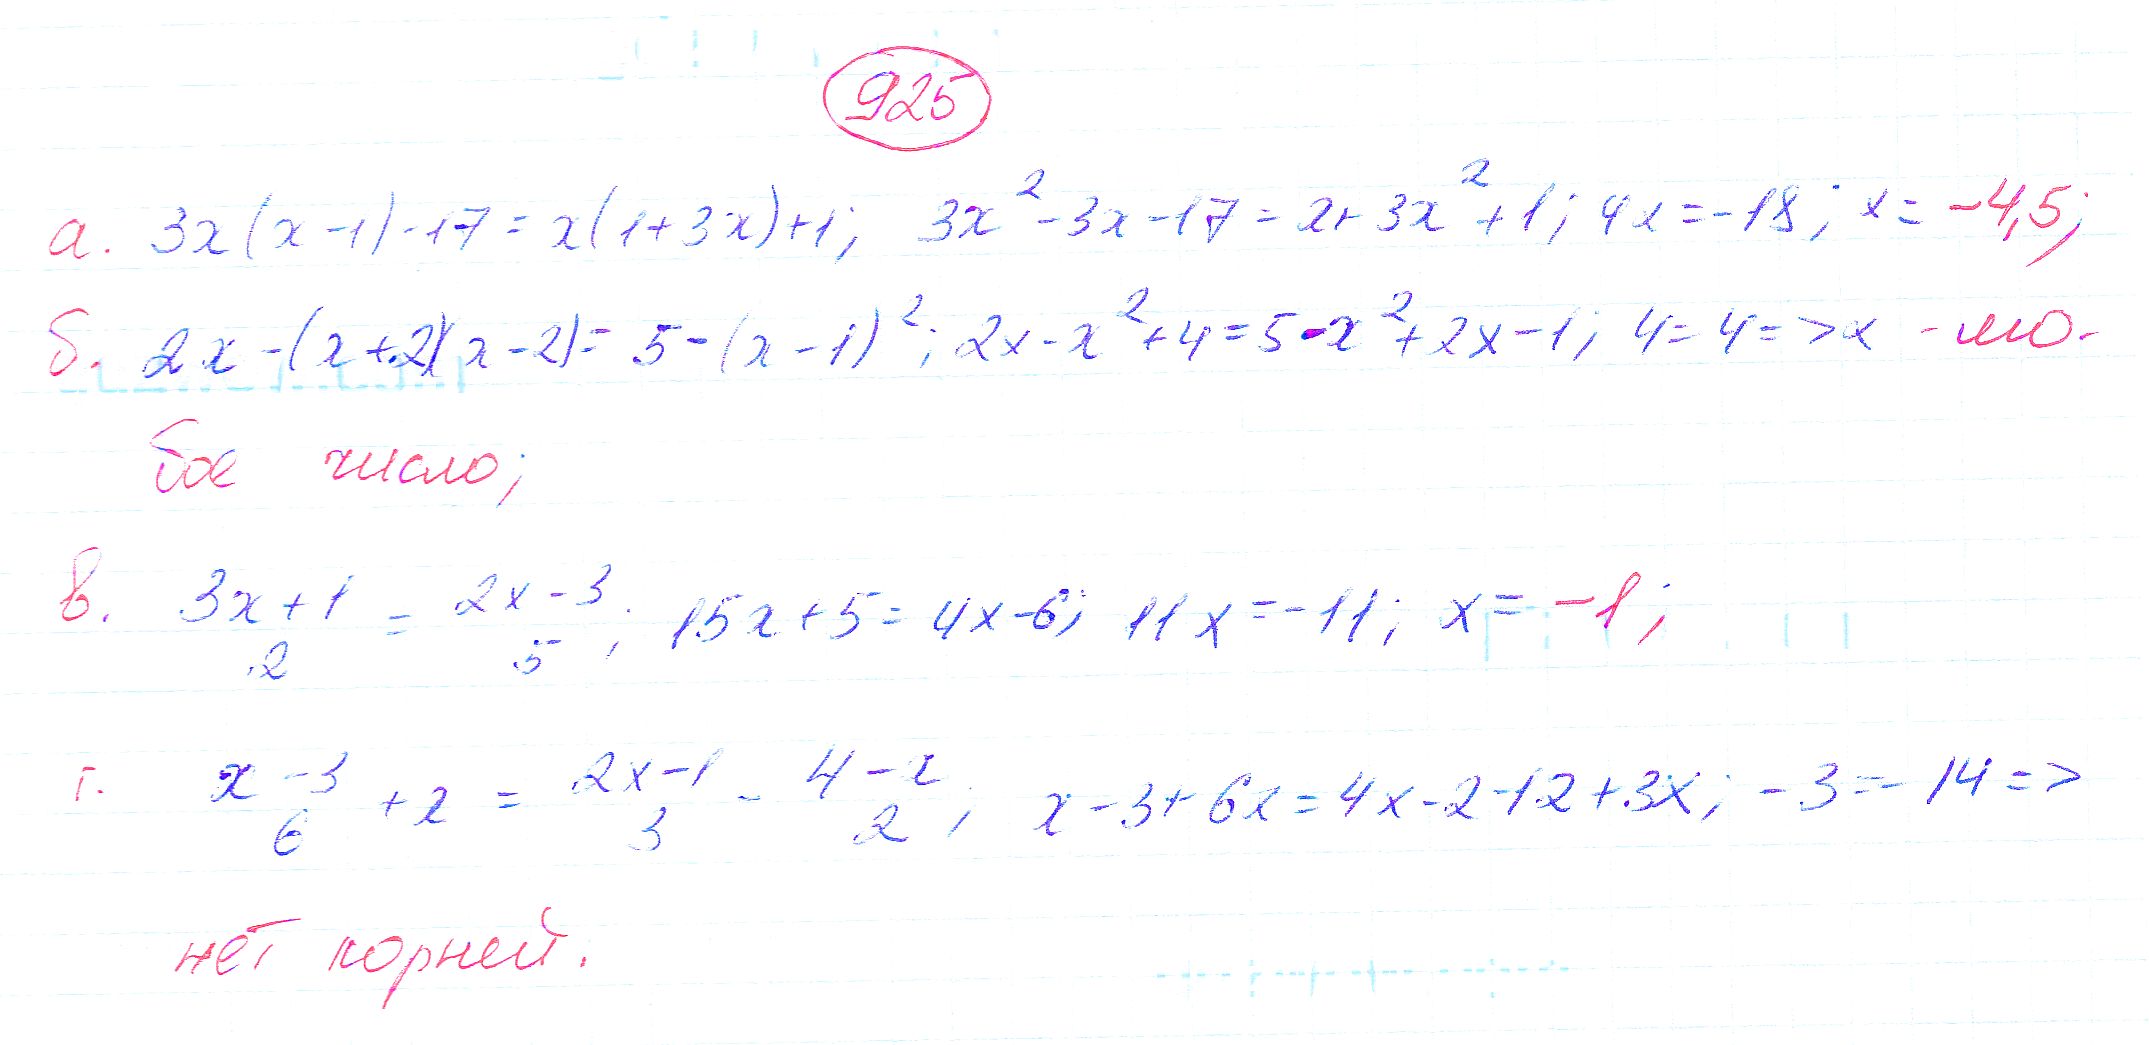 925
а. 3x(x-1)-17=x(1+3x)+1; 3x²-3x-17=x+3x²+1; 4x=-18; x=-4,5;
б. 2x-(x+2)(x-2)=5-(x-1)²; 2x-x²+4=5-x²+2x-1; 4=4=>x - лю-
бое число;
в. 3x+1/2 = 2x-3/5; 15x+5=4x-6; 11x=-11; x=-1;
г. x-3/6 + x = 2x-1/3 - 4-x/2; x-3+6x=4x-2-12+3x; -3=-14=>
нет корней.